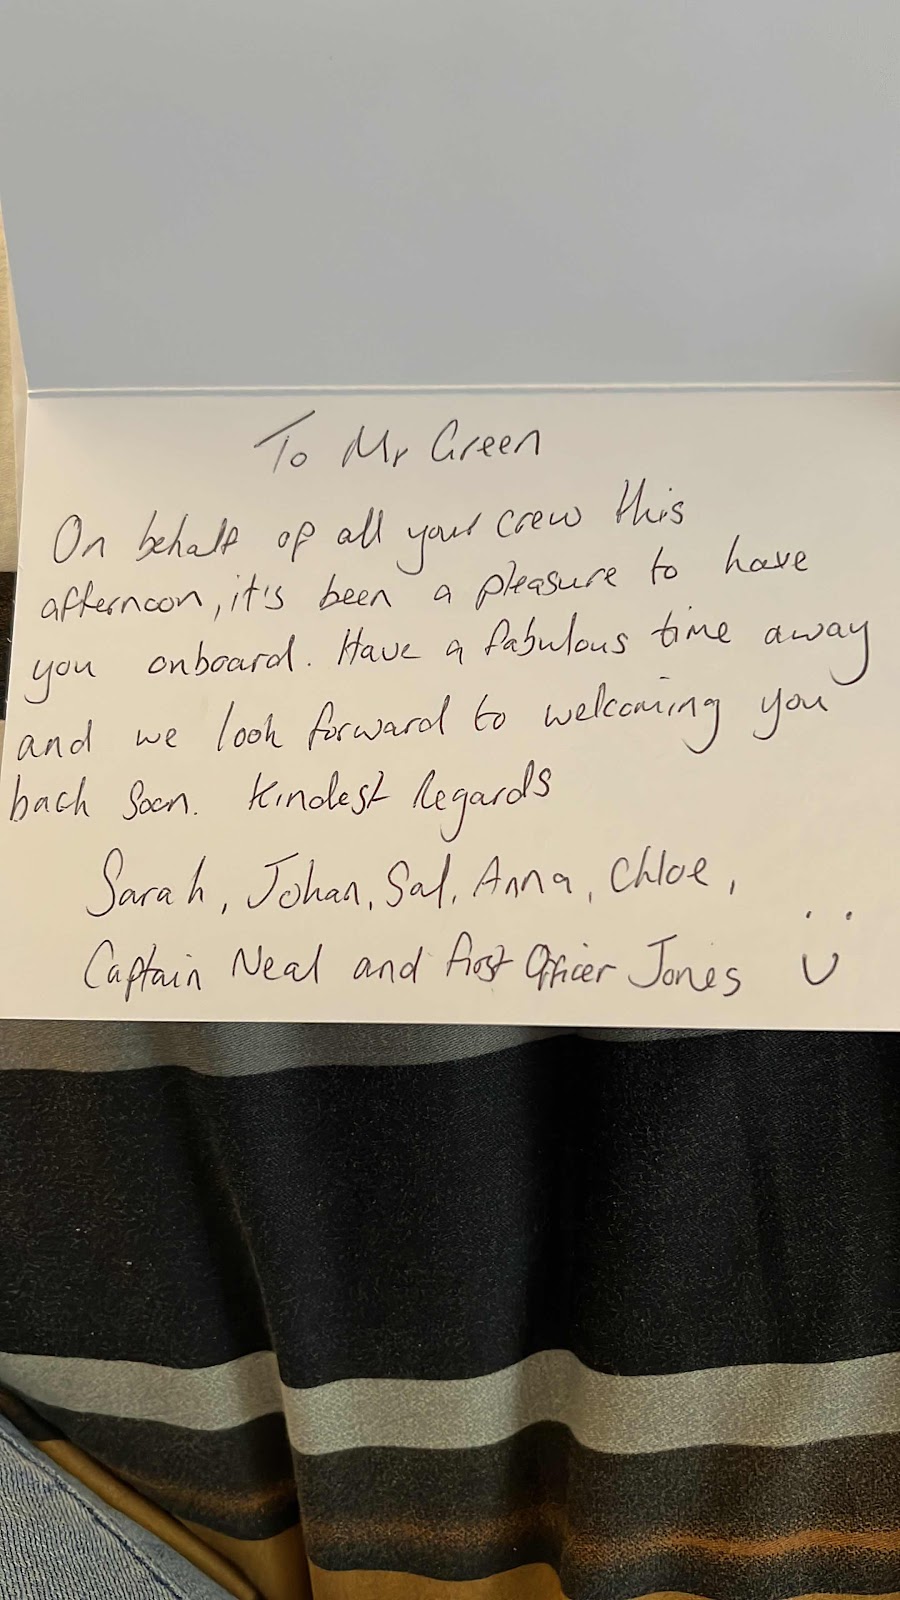 To Mr Green
On behalf of all your crew this
afternoon, it's been a pleasure to have
you onboard. Have a fabulous time away
and we look forward to welcoming you
back soon. Kindest Regards
Sarah, Johan, Sal, Anna, Chloe,
Captain Neal and First Officer Jones